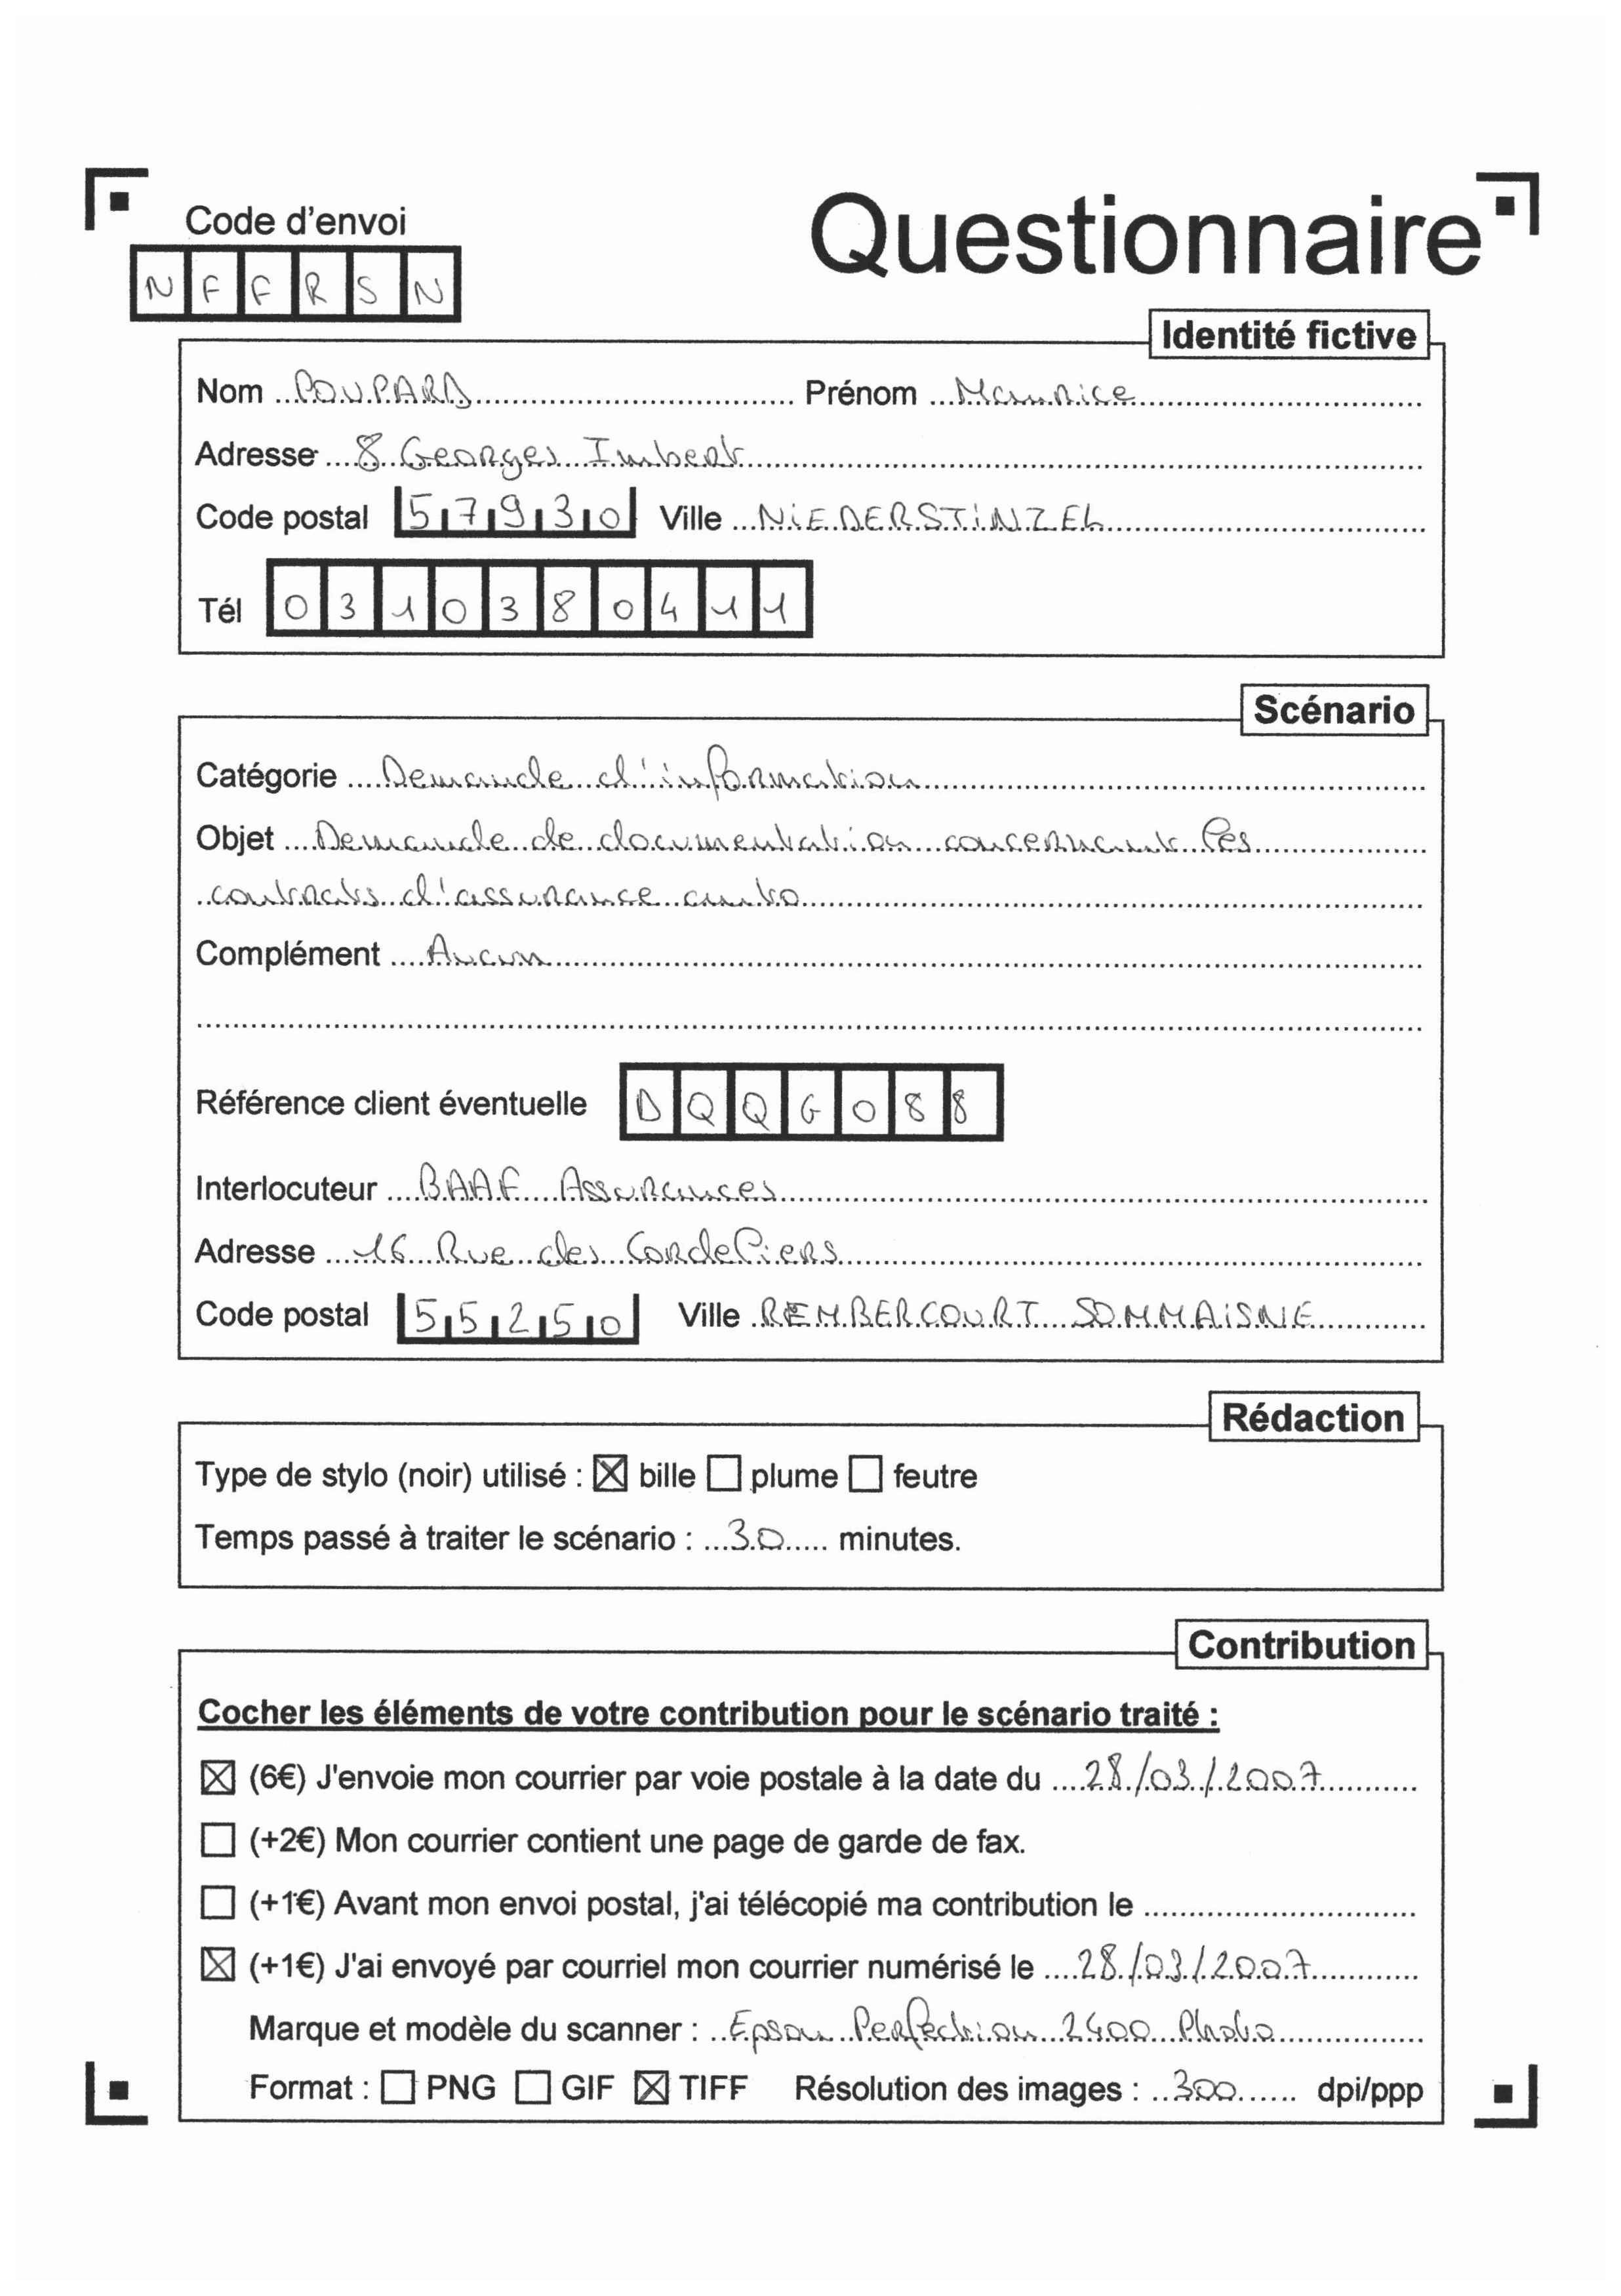 Questionnaire
Code d'envoi
NFFRSN
Identité fictive
Nom POUPARD Prénom Maurice
Adresse 8 Georges Imbert
Code postal 57930 Ville NIEDERSTINZEL
Tél 0310380411
Scénario
Catégorie Demande d'information
Objet Demande de documentation concernant les
contrats d'assurance auto
Complément Aucun
Référence client éventuelle DQQG088
Interlocuteur BAAF Assurances
Adresse 16 Rue des Cordeliers
Code postal 55250 Ville REMBERCOURT SOMMAISNE
Rédaction
Type de stylo (noir) utilisé : ☒ bille ☐ plume ☐ feutre
Temps passé à traiter le scénario : 30 minutes.
Contribution
Cocher les éléments de votre contribution pour le scénario traité :
☒ (6€) J'envoie mon courrier par voie postale à la date du 28/03/2007
☐ (+2€) Mon courrier contient une page de garde de fax.
☐ (+1€) Avant mon envoi postal, j'ai télécopié ma contribution le
☒ (+1€) J'ai envoyé par courriel mon courrier numérisé le 28/03/2007
Marque et modèle du scanner : Epson Perfection 2400 Photo
Format : ☐ PNG ☐ GIF ☒ TIFF Résolution des images : 300 dpi/ppp